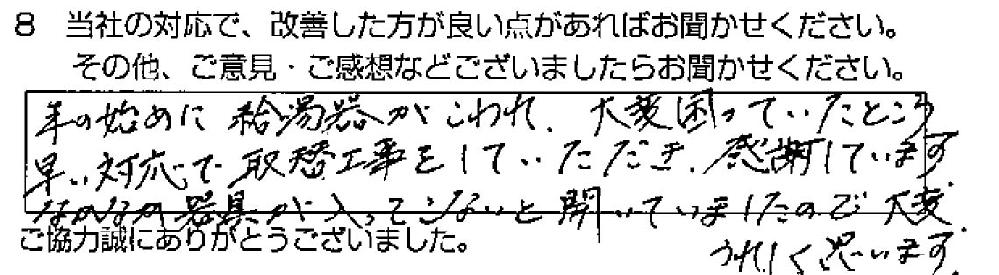 8 当社の対応で、改善した方が良い点があればお聞かせください。
その他、ご意見・ご感想などございましたらお聞かせください。
年の始めに給湯器がこわれ、大変困っていたところ
早い対応で取替工事をしていただき、感謝しています。
なかなか器具が入ってこないと聞いていましたので大変
うれしく思います。
ご協力誠にありがとうございました。